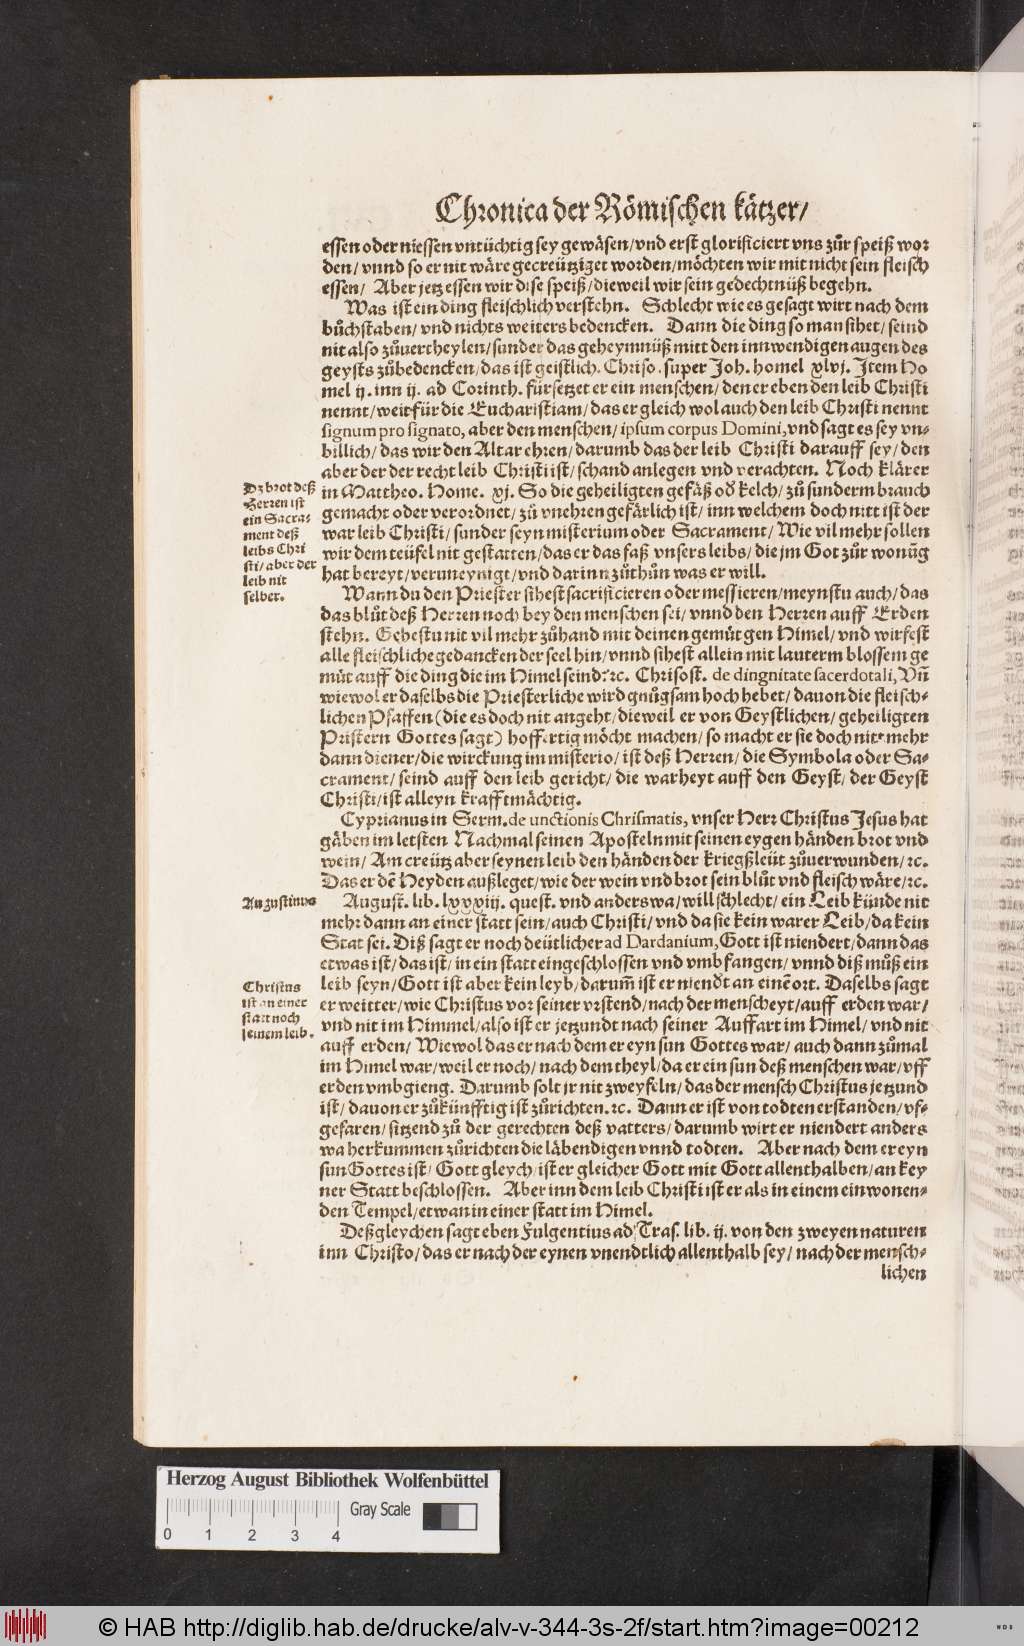 Chronica der Römischen kätzer/
essen oder niessen vntüchtig sey gewäsen/vnd erst glorificiert vns zůr speiß wor
den/ vnnd so er nit wäre gecreütziget worden/möchten wir mit nicht sein fleisch
essen/ Aber jetz essen wir dise speiß/dieweil wir sein gedechtnüß begehn.
Was ist ein ding fleischlich verstehn. Schlecht wie es gesagt wirt nach dem
bůchstaben/ vnd nichts weiters bedencken. Dann die ding so man sihet/ seind
nit also zůvertheylen/sunder das geheymnüß mitt den innwendigen augen des
geysts zůbedencken/das ist geistlich. Chriso. super Joh. homel xlvj. Item Ho
mel ij. inn ij. ad Corinth. fürsetzet er ein menschen/den er eben den leib Christi
nennt/weit für die Eucharistiam/das er gleich wol auch den leib Christi nennt
signum pro signato, aber den menschen/ ipsum corpus Domini, vnd sagt es sey vn-
billich/das wir den Altar ehren/darumb das der leib Christi darauff sey/den
aber der der recht leib Christi ist/schand anlegen vnd verachten. Noch klärer
in Mattheo. Home. xj. So die geheiligten gefäß oď kelch/zů sunderm brauch
gemacht oder verordnet/ zů vnehren gefärlich ist/ inn welchem doch nitt ist der
war leib Christi/ sunder seyn misterium oder Sacrament/ Wie vil mehr sollen
wir dem teüfel nit gestatten/das er das faß vnsers leibs/ die jm Got zůr wonūg
hat bereyt/verunreynigt/vnd darinn zůthůn was er will.
Dz brot deß
Herren ist
ein Sacra-
ment deß
leibs Chri
sti/ aber der
leib nit
selber.
Wann du den Priester sihest sacrificieren oder messieren/meynstu auch/das
das blůt deß Herren noch bey den menschen sei/ vnnd den Herren auff Erden
stehn. Gehestu nit vil mehr zůhand mit deinen gemůt gen Himel/ vnd wirfest
alle fleischliche gedancken der seel hin/vnnd sihest allein mit lauterm blossem ge
můt auff die ding die im Himel seind? ꝛc. Chrisost. de dingnitate sacerdotali, Vñ
wiewol er daselbs die Priesterliche wird gnůgsam hoch hebet/ dauon die fleisch-
lichen Pfaffen (die es doch nit angeht/dieweil er von Geystlichen/ geheiligten
Pristern Gottes sagt) hoffertig möcht machen/ so macht er sie doch nit mehr
dann diener/die wirckung im misterio/ ist deß Herren/ die Symbola oder Sa-
crament/ seind auff den leib gericht/ die warheyt auff den Geyst/ der Geyst
Christi/ist alleyn krafftmächtig.
Cyprianus in Serm. de unctionis Chrismatis, vnser Herr Christus Jesus hat
gäben im letsten Nachmal seinen Aposteln mit seinen eygen händen brot vnd
wein/ Am creütz aber seynen leib den händen der kriegßleüt zůuerwunden/ꝛc.
Das er dē Heyden außleget/wie der wein vnd brot sein blůt vnd fleisch wäre/ꝛc.
Augustinus
August. lib. lxxxiij. quest. vnd anderswa/will schlecht/ ein Leib künde nit
mehr dann an einer statt sein/auch Christi/ vnd da sie kein warer Leib/da kein
Stat sei. Diß sagt er noch deütlicher ad Dardanium, Gott ist niendert/dann das
etwas ist/das ist/ in ein statt eingeschlossen vnd vmbfangen/ vnnd diß můß ein
leib seyn/Gott ist aber kein leyb/darum̄ ist er niendt an einē ort. Daselbs sagt
er weitter/wie Christus vor seiner vrstend/nach der menscheyt/auff erden war/
vnd nit im Himmel/also ist er jetzundt nach seiner Auffart im Himel/ vnd nit
auff erden/ Wiewol das er nach dem er eyn sun Gottes war/ auch dann zůmal
im Himel war/weil er noch/ nach dem theyl/da er ein sun deß menschen war/ vff
erden vmbgieng. Darumb solt jr nit zweyfeln/das der mensch Christus jetzund
ist/ dauon er zůkünfftig ist zůrichten.ꝛc. Dann er ist von todten erstanden/ vf-
gefaren/ sitzend zů der gerechten deß vatters/ darumb wirt er niendert anders
wa herkummen zůrichten die läbendigen vnnd todten. Aber nach dem er eyn
sun Gottes ist/ Gott gleych/ist er gleicher Gott mit Gott allenthalben/an key
ner Statt beschlossen. Aber inn dem leib Christi ist er als in einem einwonen-
den Tempel/etwan in einer statt im Himel.
Christus
ist an einer
statt noch
seinem leib.
Deßgleychen sagt eben Fulgentius ad Tras. lib. ij. von den zweyen naturen
inn Christo/das er nach der eynen vnendtlich allenthalb sey/ nach der mensch-
lichen
Herzog August Bibliothek Wolfenbüttel
Gray Scale
0 1 2 3 4
© HAB http://diglib.hab.de/drucke/alv-v-344-3s-2f/start.htm?image=00212